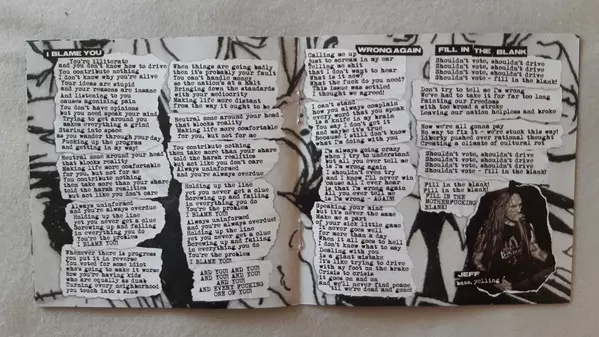 I BLAME YOU
You're illiterate
and you don't know how to drive
You contribute nothing
I don't know why you're alive
Your ideas are stupid
and your reasons are insane
And listening to you
causes agonizing pain
You don't have opinions
but you need speak your mind
Trying to get around you
makes everything a grind
Staring into space
as you wander through your day
Fucking up the progress
and getting in my way!
Neutral zone around your head
that blocks reality
Making life more comfortable
for you, but not for me
You contribute nothing
then take more than your share
told the harsh realities
but not like you don't care
Always uninformed
and you're always overdue
Holding up the line
yet you never get a clue
Screwing up and failing
in everything you do
You're the problem
I BLAME YOU!
Whenever there is progress
you put it in reverse
You voted for some idiot
who's going to make it worse
Now you're having kids
who are equally as dumb
Turning every neighborhood
you touch into a slum
When things are going badly
then it's probably your fault
You can't handle money
so the nation's at a halt
Bringing down the standards
with your mediocrity
Making life more distorted
from the way it ought to be
Neutral zone around your head
that blocks reality
Making life more comfortable
for you, but not for me
You contribute nothing
then take more than your share
told the harsh realities
but not like you don't care
Always uninformed
and you're always overdue
Holding up the line
yet you never get a clue
Screwing up and failing
in everything you do
You're the problem
I BLAME YOU!
Always uninformed
and you're always overdue
Holding up the line
yet you never get a clue
Screwing up and failing
in everything you do
You're the problem
I BLAME YOU!
AND YOU! AND YOU!
AND YOU! AND YOU!
AND YOU!
AND EVERY FUCKING
ONE OF YOU!
WRONG AGAIN
Calling me up
just to scream in my ear
Telling me shit
that I don't want to hear
What is it now?
What the fuck do you need?
This issue was settled
I thought we agreed!
I can't always complain
every word that you speak
You say that I
just don't get it
and maybe it's true
'Cause I don't know
what I'm doing with you!
I'm always going crazy
when I try to understand
it all you ever tell me
is I'm wrong again
I shouldn't even try
and I hope I'll never win
'cause all I ever hear
is that I'm wrong again
All you ever tell me
is I'm wrong - AGAIN!
Speaking your mind
but it's never the same
Make me a part
of your sick little game
It never goes well
for more than a day
When it all goes to hell
I don't know what to say
Dealing with you
is a giant mistake
It's like trying to drive
with my foot on the brake
Crisis to crisis
it goes on and on
and we'll never find peace
'til we're dead and gone!
FILL IN THE BLANK
Shouldn't vote, shouldn't drive
Shouldn't vote, shouldn't drive
Shouldn't vote, shouldn't drive
Shouldn't vote - fill in the blank!
Don't try to tell me I'm wrong
We've had to take it for far too long
Painting our freedoms
with too broad a stroke
Leaving our nation helpless and broke
Now we're all gonna pay
No way to fix it - we're stuck this way!
Liberty pushed over rational thought
Creating a climate of cultural rot
Shouldn't vote, shouldn't drive
Shouldn't vote, shouldn't drive
Shouldn't vote, shouldn't drive
Shouldn't vote - fill in the blank!
Fill in the blank!
Fill in the blank!
FILL IN THE
MOTHERFUCKING
BLANK!
JEFF
bass, yelling